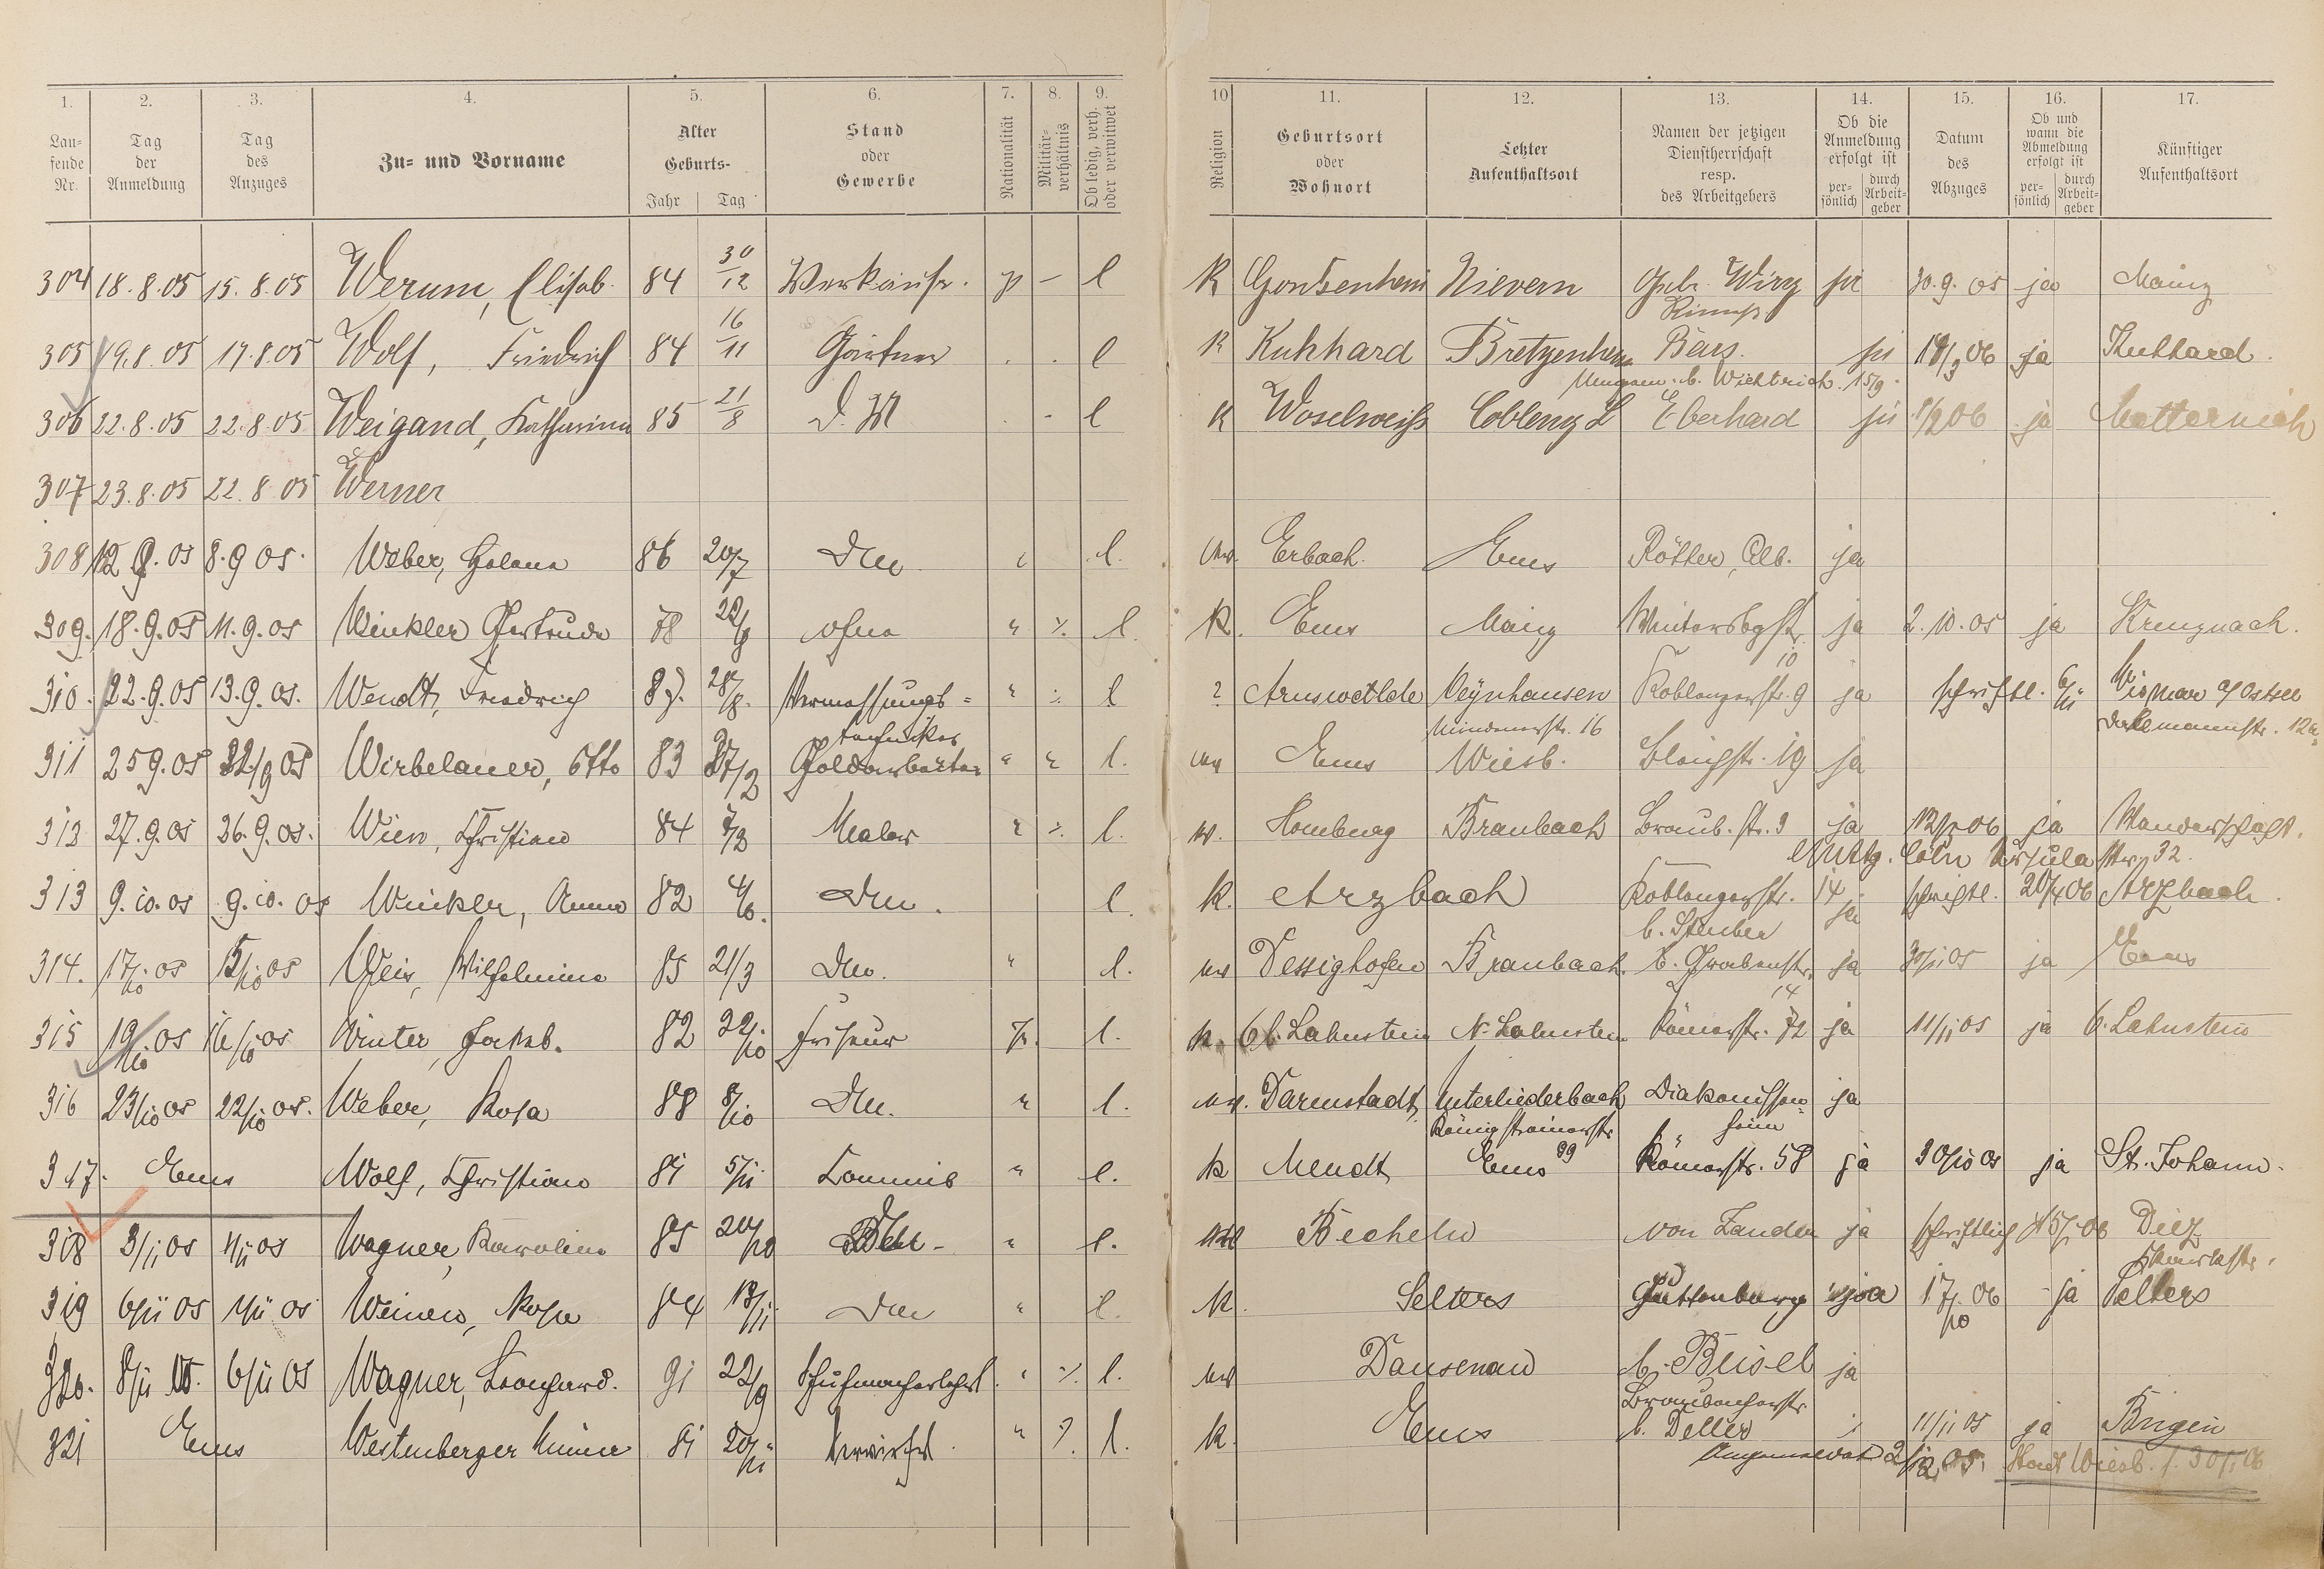 1. 2. 3. 4. 5. 6. 7. 8. 9. 10 11. 12. 13. 14. 15. 16. 17.
Lau-
fende
Nr.
Tag
der
Anmeldung
Tag
des
Anzuges
Zu- und Vorname
Alter
Geburts-
Jahr Tag
Stand
oder
Gewerbe
Nationalität
Militär-
verhältnis
Ob ledig, verh.
oder verwitwet
Religion
Geburtsort
oder
Wohnort
Letzter
Aufenthaltsort
Namen der jetzigen
Dienstherrschaft
resp.
des Arbeitgebers
Ob die
Anmeldung
erfolgt ist
per-
sönlich
durch
Arbeit-
geber
Datum
des
Abzuges
Ob und
wann die
Abmeldung
erfolgt ist
per-
sönlich
durch
Arbeit-
geber
Künftiger
Aufenthaltsort
304 18.8.05 15.8.05 Werum, Elisab. 84 30/12 Verkäufr. p – l K Gonsenheim Nievern Gebr. Wirz ja 30.9.05 ja Mainz
305 19.8.05 17.8.05 Wolf, Friedrich 84 16/11 Gärtner . . l K Kuhhard Bretzenheim Bärs. ja 18/3 06 ja Kuhhard.
306 22.8.05 22.8.05 Weigand, Katharina 85 21/8 D. M - l K Moselweiss Coblenz L Eberhard ja 1/2 06 ja Metternich
307 23.8.05 22.8.05 Werner
308 12.9.05 8.9.05. Weber, Helene 86 20/7 Dm l. ev. Erbach. Ems Rötter, Alb. ja
309. 18.9.05 11.9.05 Winkler Gertrude 78 ohne " ./. l. K. Ems Mainz Wintersbgstr. 10 ja 2.10.05 ja Kreuznach.
310. 22.9.05 13.9.05. Wendt, Friedrich 28/8. Vermessungs= " ./. l ? Arnswalde Oeynhausen Koblenzerstr. 9 ja schriftl. Wismar a/Ostsee
techniker Mindenerstr. 16 Dahlmannstr. 12a
311 25.9.05 22/9 05 Wirbelauer, Otto 83 27/2 Goldarbeiter " " l. ev Ems Wiesb. Bleichstr. 19 ja
312 27.9.05 26.9.05. Wien, Christian 84 Maler " ./. l. ev. Homburg Braubach Braub. str. 3 ja 12/2 06 ja Wanderschaft.
Cöln Ursula str. 32.
313 9.10.05 9.10.05 Winkler, Anna 82 4/6. Dm. l. K. Arzbach Koblenzerstr. 14 ja schriftl. 20/4 06 Arzbach.
b. Stuber
314. 17/10 05 15/10 05 Weis, Wilhelmine 85 21/3 Dm. " l. ev Dessighofen Braubach. b. Grabenstr. 14 ja 30/11 05 ja Ems
315 19/10 05 16/10 05 Winter, Jakob. 82 22/10 Friseur l. K. Ob. Lahnstein N. Lahnstein Römerstr. 72 ja 11/11 05 ja O. Lahnstein
316 23/10 05 22/10 05. Weber, Rosa 88 8/10 Dm. " l. ev. Darmstadt Unterliederbach Diakonissen= ja
Königsteinerstr. 99 heim
317. Ems Wolf, Christian 81 5/11. Commis " l. K Mendt Ems Römerstr. 58 ja 30/10 05 ja St. Johann.
318 3/11 05 1/11 05 Wagner, Karoline 85 20/10 Dm. " l. ev Becheln von Zanden ja schriftlich 15/1 06 Diez
319 6/11 05 1/11 05 Weinen, Rosa 84 13/11. Dm " l. K. Selters Guttenberg ja 17/10 06 ja Selters
320. 8/11 05. 6/11 05 Wagner, Leonhard. 91 22/9 Schuhmacherlehrl. " ./. l. ev Dausenau b. Beisel ja
Braubacherstr.
321 Ems Westenberger Minna 81 20/11 " ./. l. K. Ems b. Deller 11/11 05 ja Bingen
Angemeldet 2/12 05. Stadt Wiesb. 30/1 06